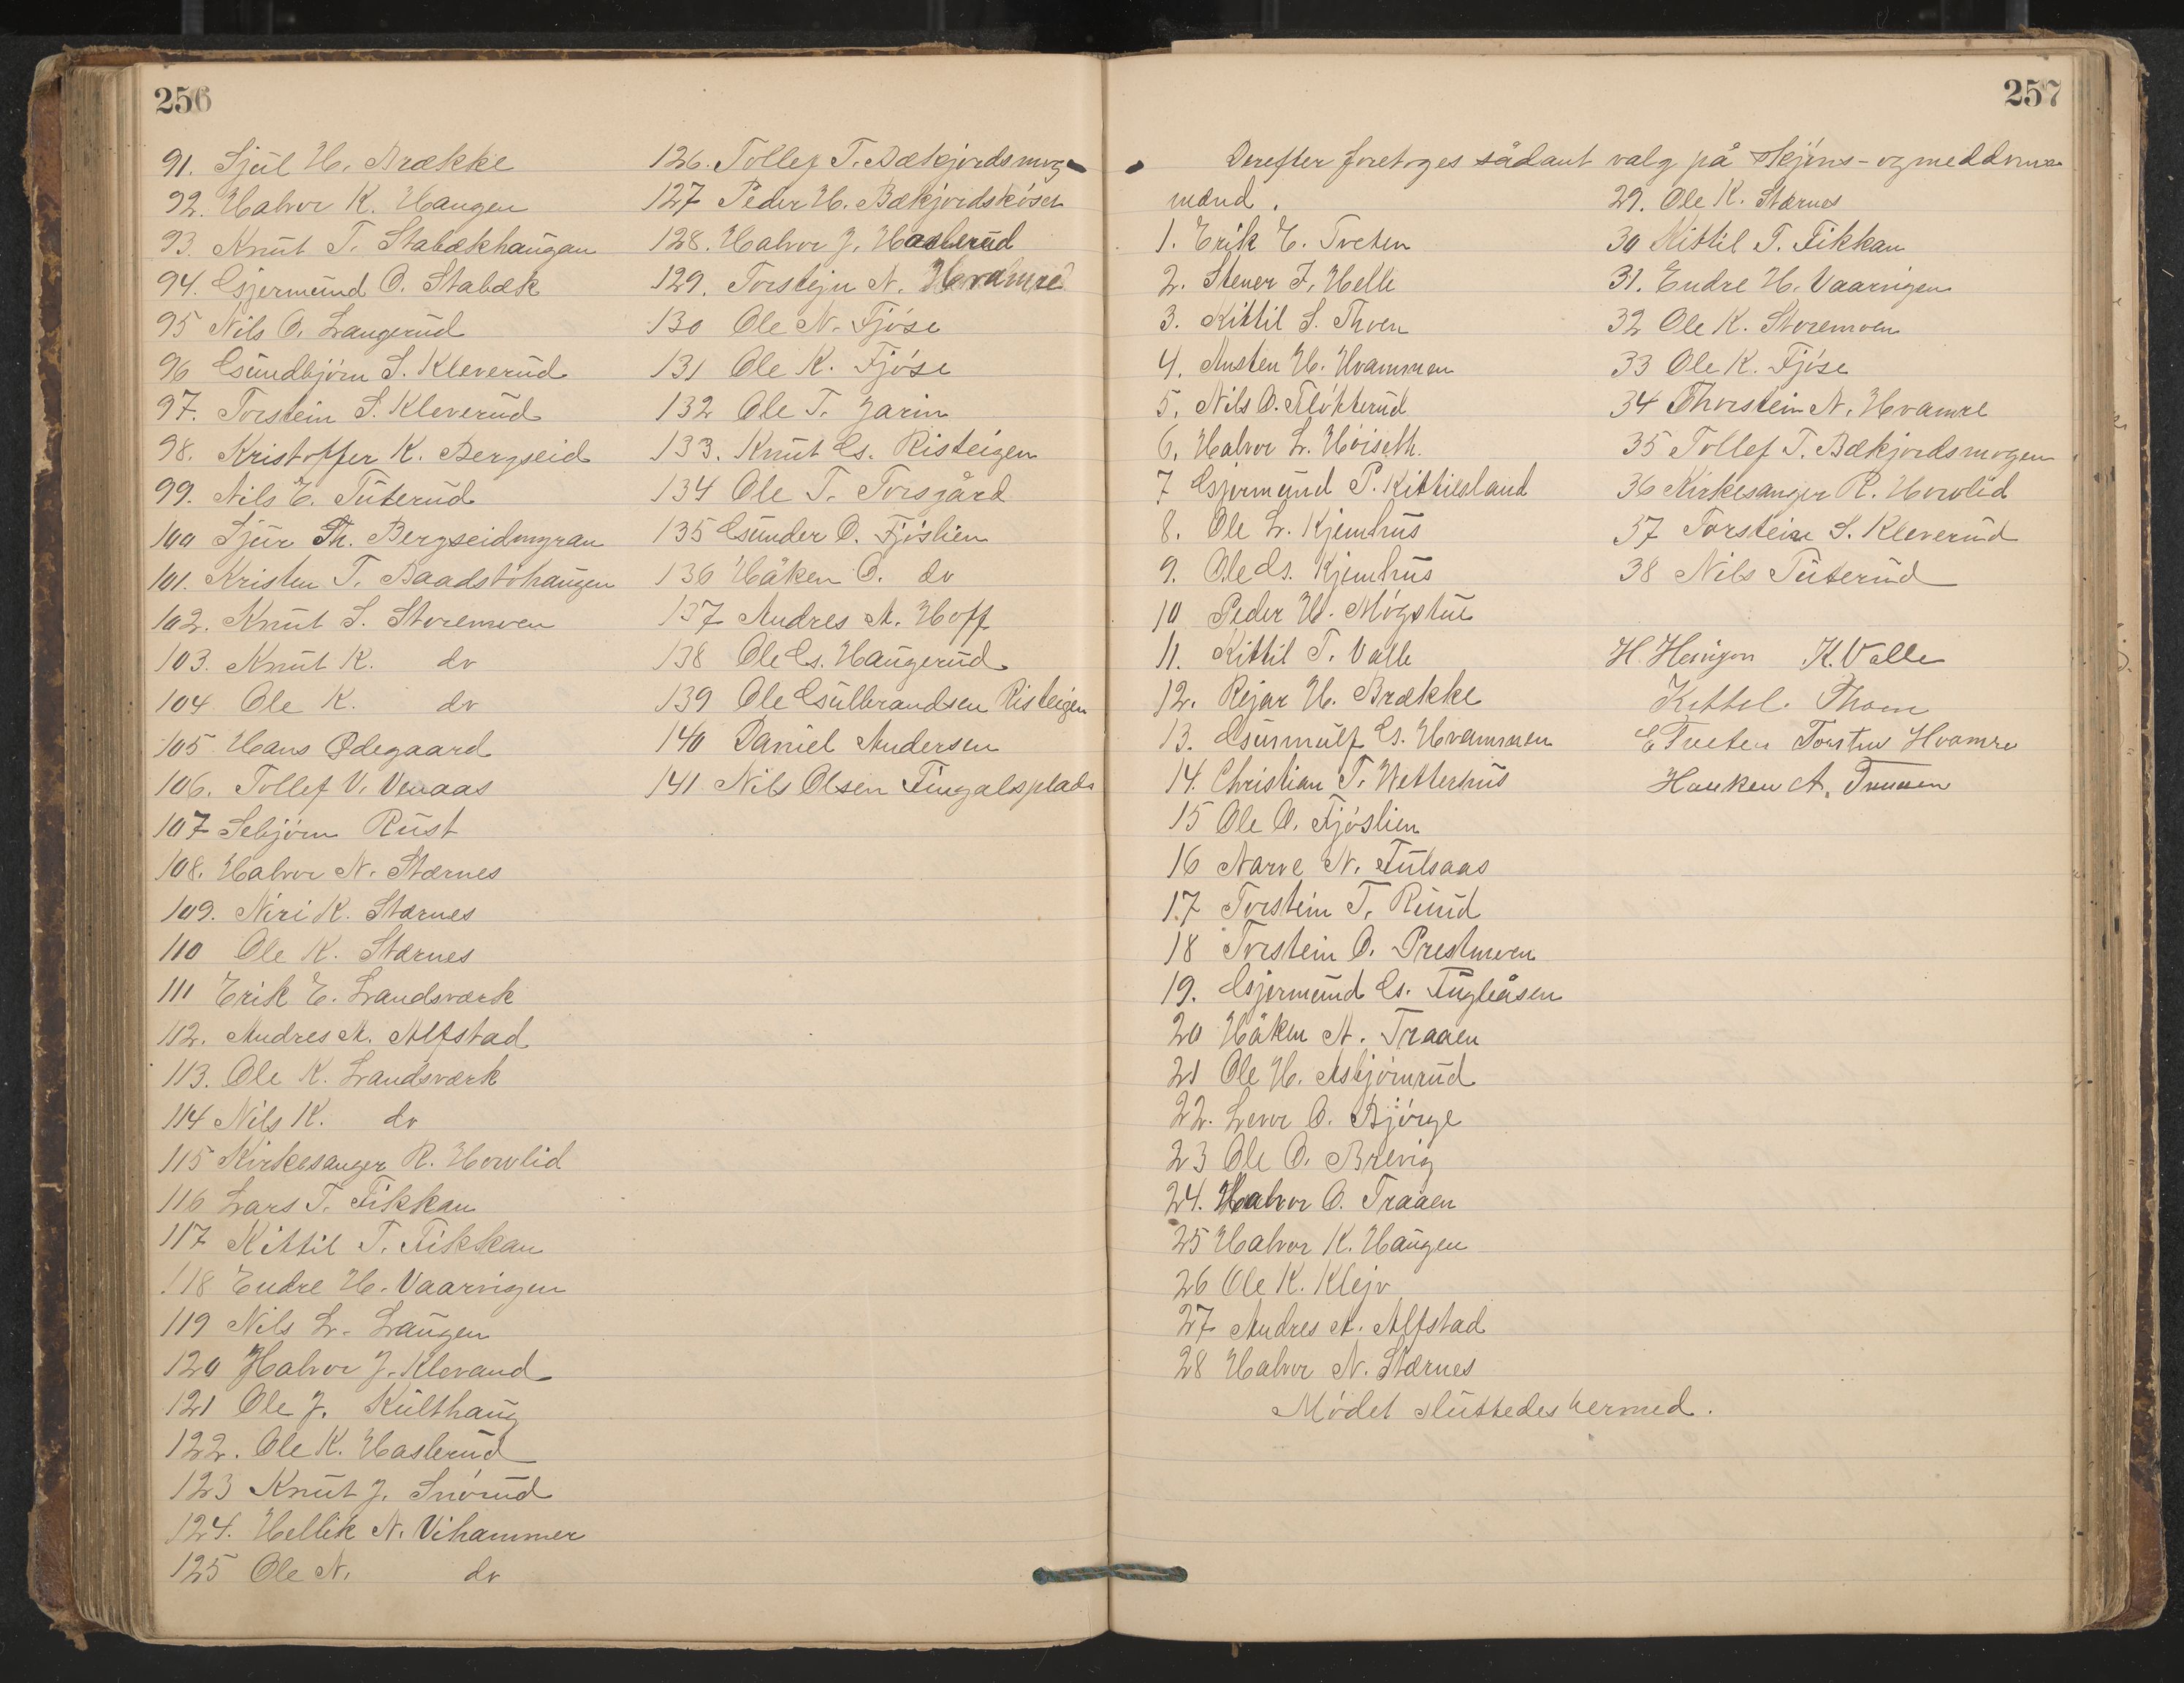 256
91. Sjul H. Brække
92. Halvor K. Haugen
93. Knut T. Stabækhaugan
94. Gjermund O. Stabæk
95 Nils O. Langerud
96 Gundbjörn S. Kleverud
97. Torstein S. Kleverud
98. Kristoffer K. Bergseid
99. Nils E. Tuterud
100 Sjur Th. Bergseidmyran
101. Kristen T. Baadstöhaugen
102. Knut S. Storemoen
103. Knut K. do
104 Ole K. do
105 Hans Ødegaard
106. Tollef V. Venaas
107 Sebjörn Rust
108. Halvor N. Stærnes
109. Niri K. Stærnes
110 Ole K. Stærnes
111 Erik E. Landsværk
112. Andres A. Alfstad
113. Ole K. Landsværk
114 Nils K. do
115 Kirkesanger R. Hovlid
116 Lars T. Fikkan
117 Kittil T. Fikkan
118 Endre H. Vaarvigen
119 Nils L. Laugen
120 Halvor J. Klevand
121 Ole J. Kulthaug
122. Ole K. Haslerud
123 Knut J. Snörud
124. Hellik N. Vihammer
125 Ole N. do
126. Tollef T. Bækjordsmog
127 Peder H. Bækjordsköset
128. Halvor J. Haslerud
129. Torstejn N. Hvamre
130 Ole N. Fjöse
131 Ole K. Fjöse
132 Ole T. Jarin
133. Knut G. Risteigen
134 Ole T. Torsgård
135 Gunder O. Fjöslien
136 Håken O. do
137 Andres A. Hoff
138 Ole G. Haugerud
139 Ole Gulbrandsen Risteigen
140 Daniel Andersen
141 Nils Olsen Fingalsplads
257
Derefter foretoges sådant valg på skjöns- og meddoms
mænd.
1. Erik E. Tveten
2. Stener F. Helle
3. Kittil S. Thoen
4. Austen H. Hvammen
5. Nils O. Flökterud
6. Halvor L. Höiseth.
7 Gjermund P. Kittiesland
8. Ole L. Kjemhus
9. Ole G. Kjemhus
10 Peder H. Mögstue
11. Kittil T. Valle
12. Rejar H. Brække
13. Gunnulf G. Hvammen
14. Christian T. Wetterhus
15 Ole O. Fjöslien
16 Narve N. Fulsaas
17 Torstein T. Ruud
18 Torstein O. Prestmoen
19. Gjermund G. Fugleåsen
20 Håken A. Traaen
21 Ole H. Asbjörnrud
22. Levor O. Bjørge
23 Ole O. Brevig
24. Halvor O. Traaen
25 Halvor K. Haugen
26 Ole K. Klejv
27 Andres A. Alfstad
28 Halvor N. Stærnes
Mödet sluttedes hermed.
29. Ole K. Stærnes
30 Kittil T. Fikkan
31. Endre H. Vaarvigen
32 Ole K. Storemoen
33 Ole K. Fjöse
34 Thorstein N. Hvamre
35 Tollef T. Bækjordsmogen
36 Kirkesanger R. Hovlid
37 Torstein S. Kleverud
38 Nils Tuterud
H. K. Valle
Kittel Thoen
E Tveten Torsten Hvamre
Haaken A. Traaen